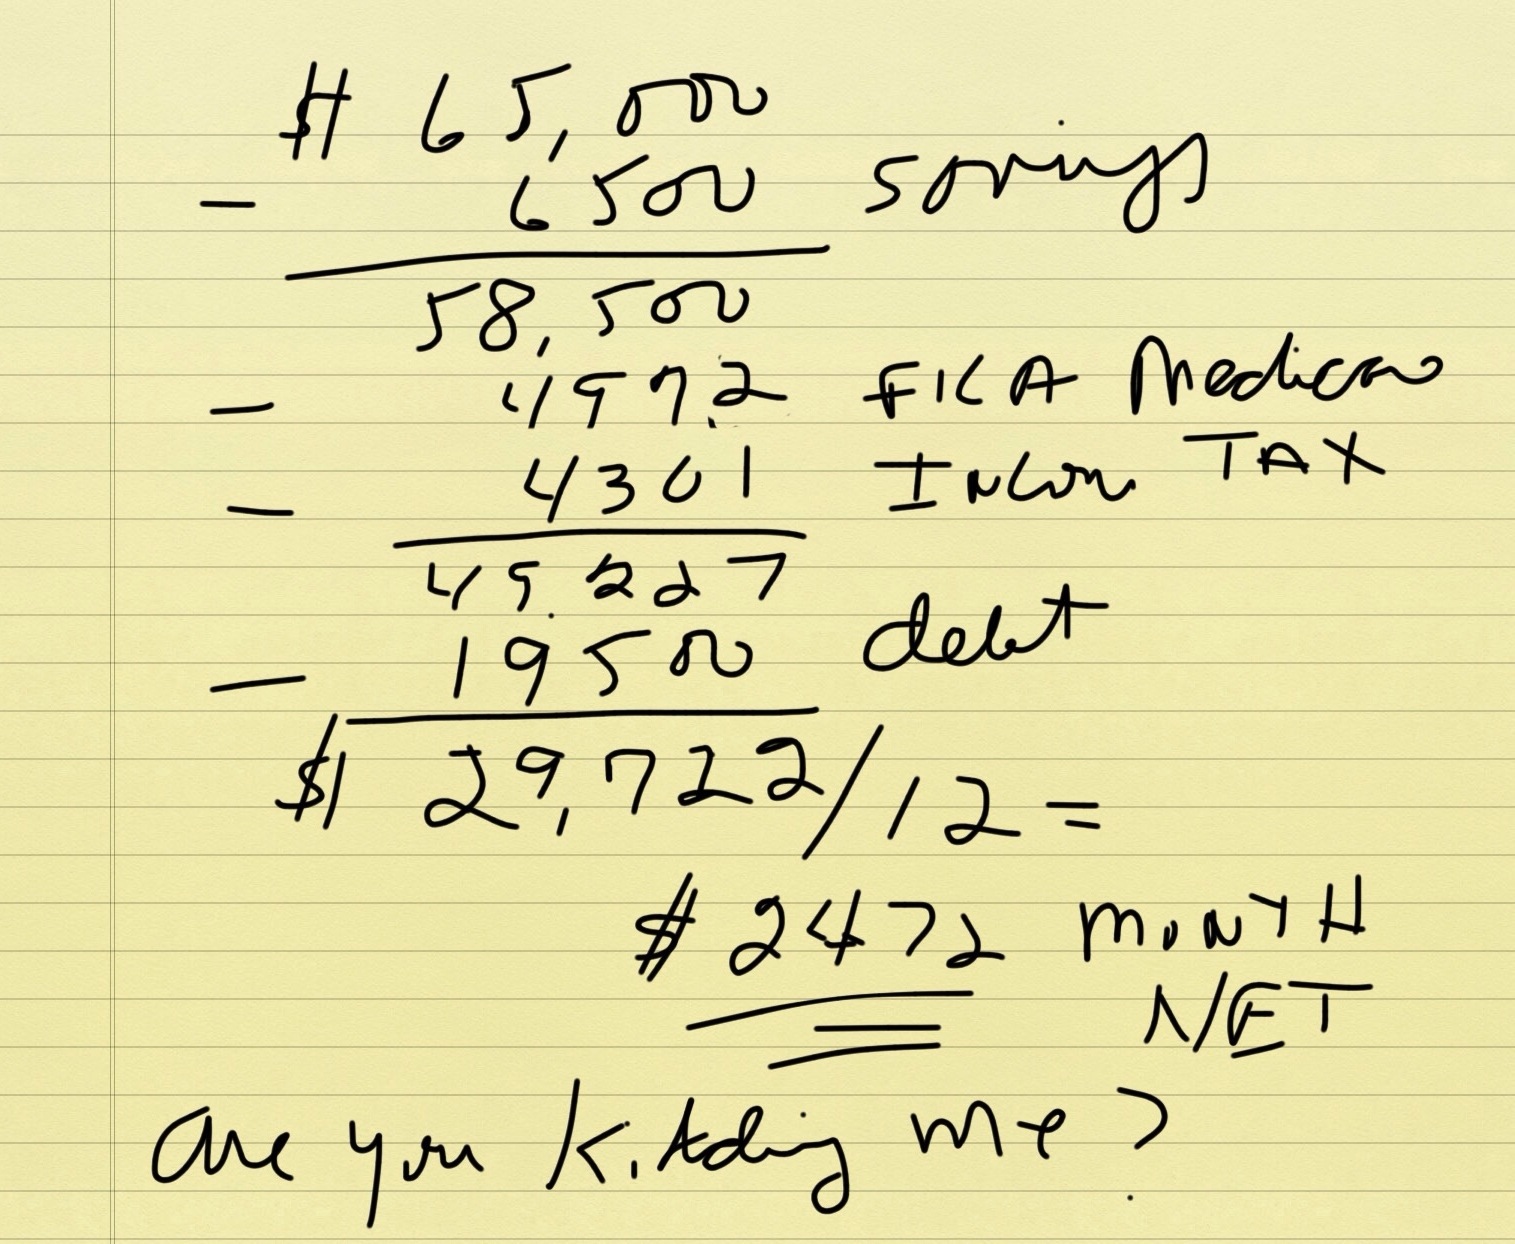 $ 65,000
- 6500 savings
58,500
- 4972 FICA Medicare
- 4301 Income TAX
49227
- 19500 debt
$ 29,722/12 =
$ 2472 MONTH
NET
are you kidding me?